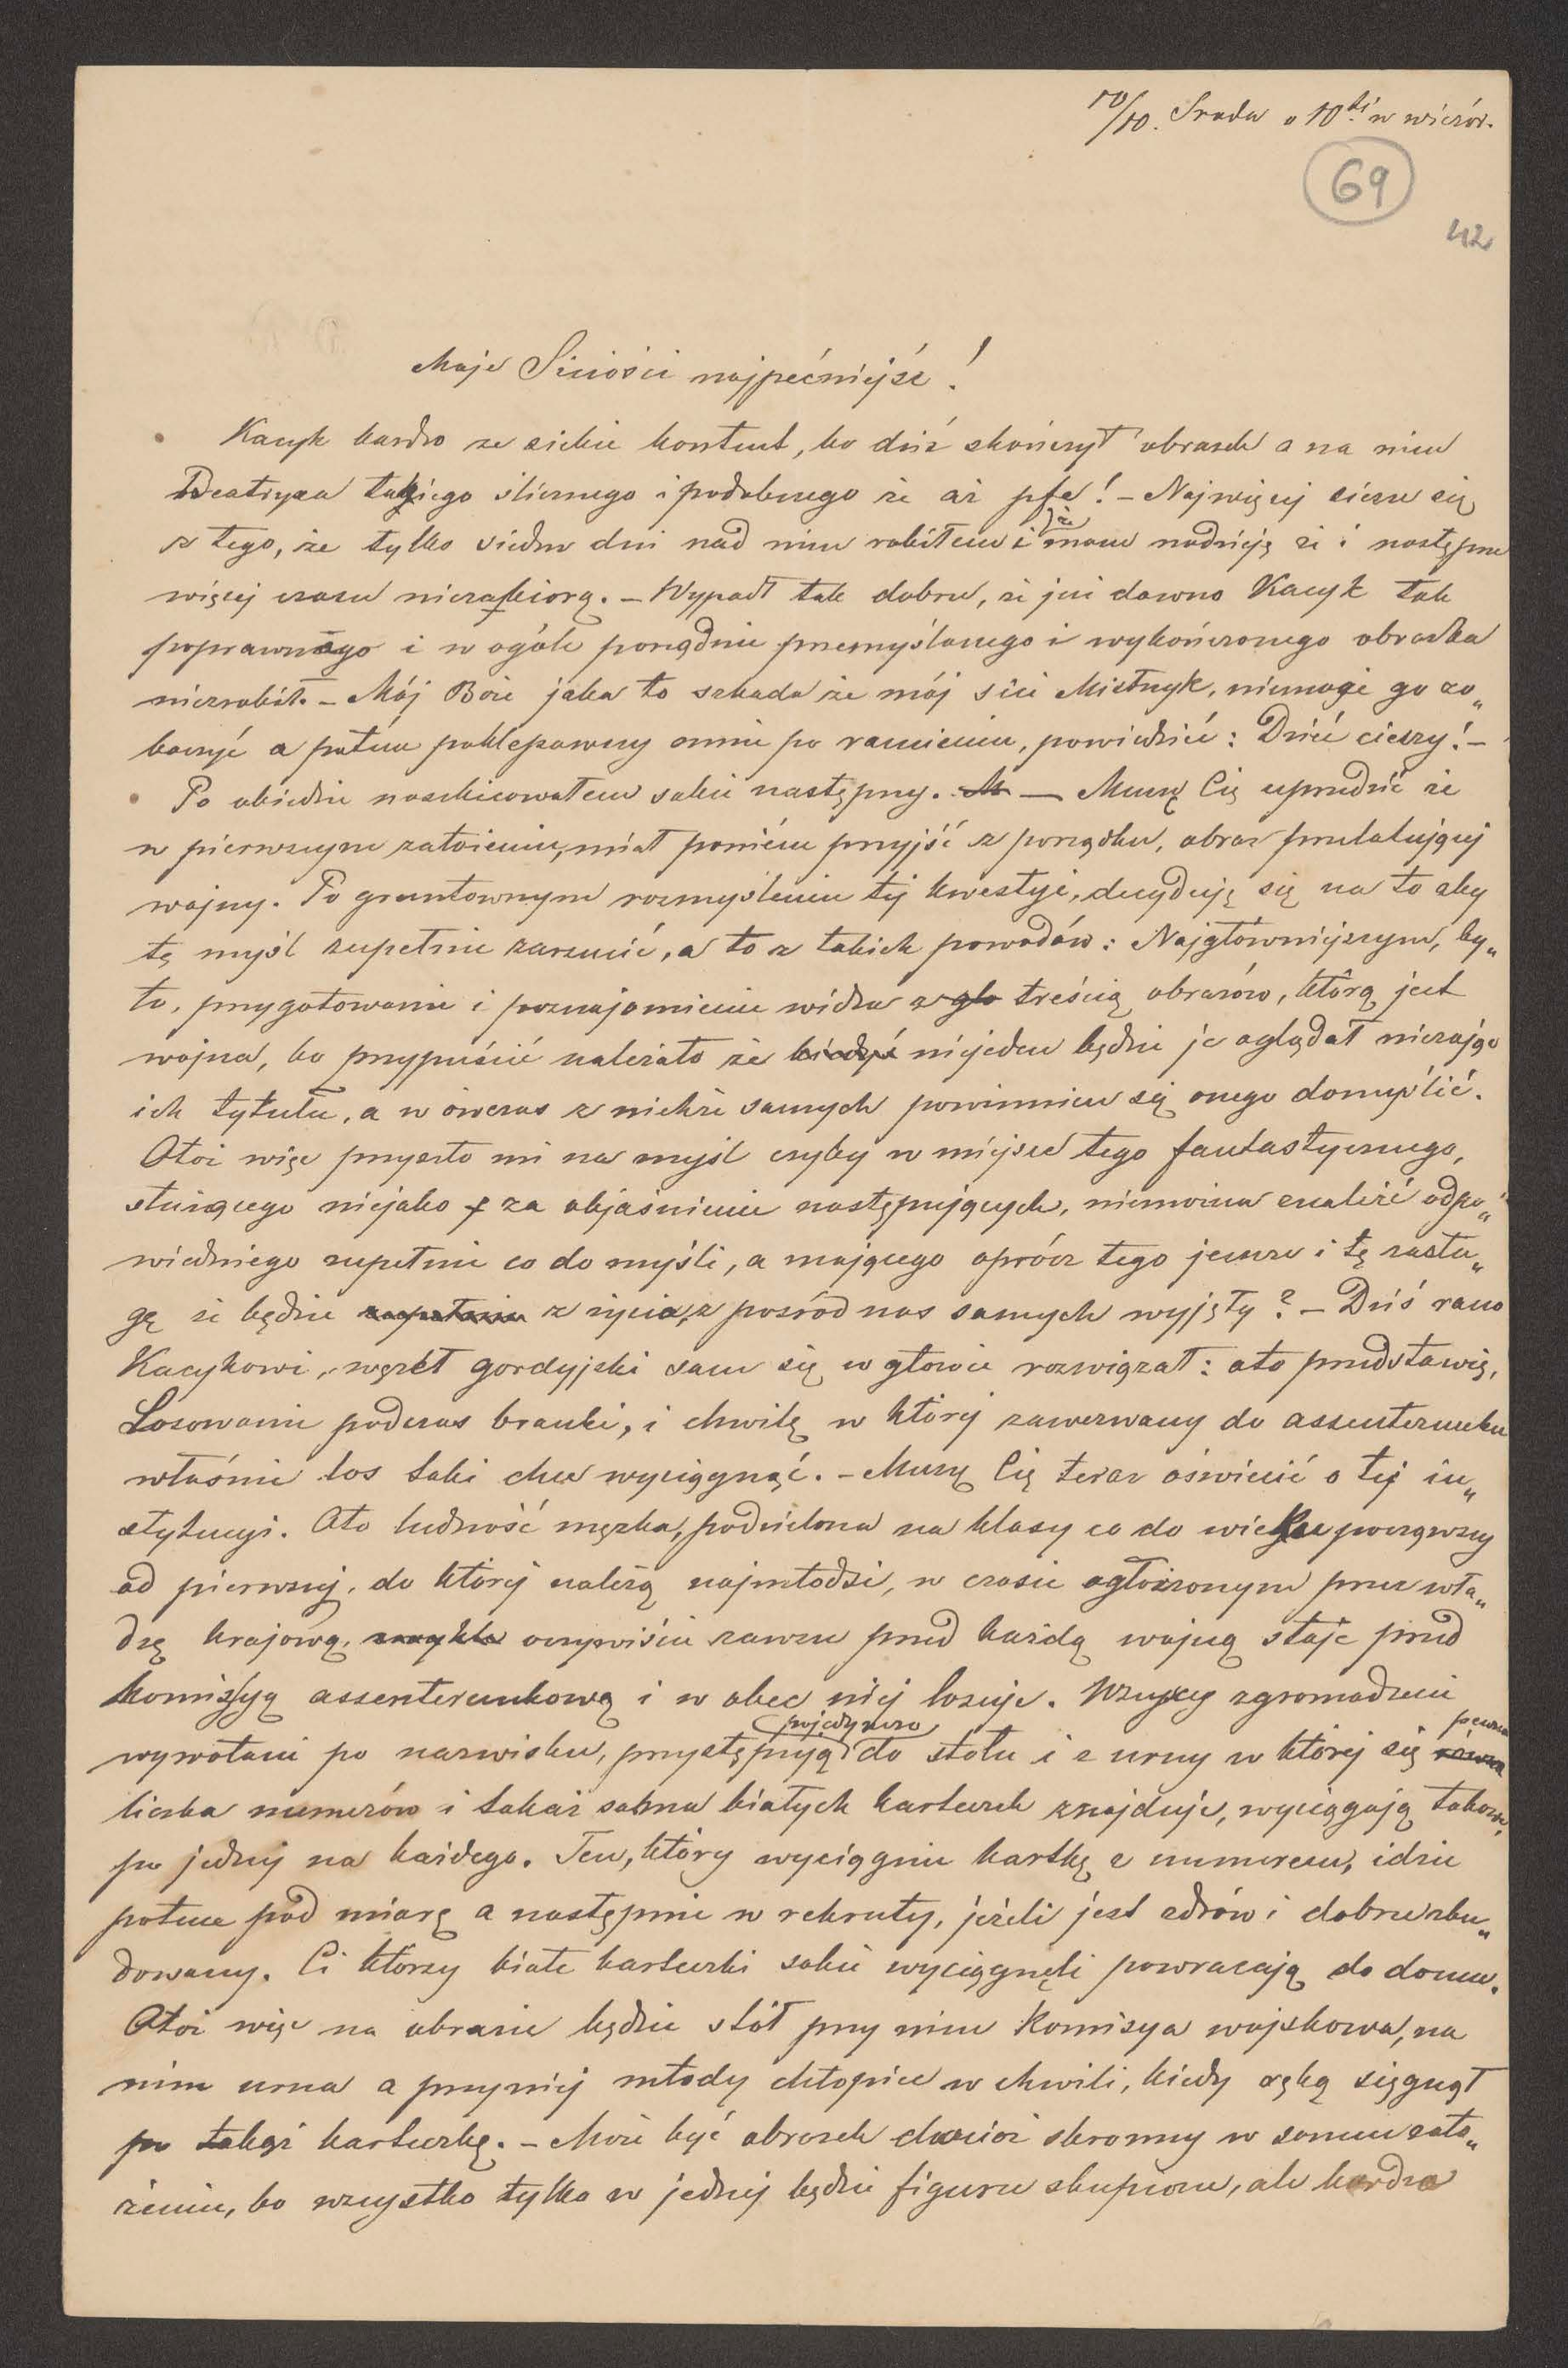 10/10. Sroda o 10téj w wieczór.
69
42
Moje Siciości najpećniejśe!
Kacyk bardzo ze siebie kontent, bo dziś skończył obrazek a na nim
Beatryxa takiego ślicznego i podobnego że aż pfe! – Najwięcej cieszę się
z tego, że tylko siedm dni nad nim robiłem i że mam nadzieję że i następne
więcej czasu niezabiorą. – Wypadł tak dobrze, że już dawno Kacyk tak
poprawnego i w ogóle porządnie przemyślanego i wykończonego obrazka
niezrobił. – Mój Boże jaka to szkoda że mój sici Mistrzyk, niemoże go zo„
baczyć a potem poklepawszy mnie po ramieniu, powiedzieć: Dzieć cieszy! –
Po obiedzie naszkicowałem sobie następny. – Muszę Cię uprzedzić że
w pierwszym założeniu, miał poniém przyjść z porządku, obraz przelatującej
wojny. Po gruntownym rozmyśleniu téj kwestyi, decyduję się na to aby
tę myśl zupełnie zarzucić, a to z takich powodów: Najgłówniejszym, by„
ło, przygotowanie i poznajomienie widza z treścią obrazów, którą jest
wojna, bo przypuścić należało że niejeden będzie je oglądał nieznając
ich tytułu, a w ówczas z niektórych samych powinnien się onego domyślić.
Otóż więc przyszło mi na myśl czyby w miejsce tego fantastycznego,
służącego niejako za objaśnienie następujących, niemożna znaleźć odpo„
wiedniego zupełnie co do myśli, a mającego oprócz tego jeszcze i tę zasłu„
gę że będzie z życia, z pośród nas samych wyjęty? – Dziś rano
Kacykowi, węzeł gordyjski sam się w głowie rozwiązał: oto przedstawię,
Losowanie podczas branki, i chwilę w której zawezwany do assenterunku
właśnie los taki chce wyciągnąć. – Muszę Cię teraz oświecić o téj in„
stytucyi. Oto ludność męzka, podzielona na klasy co do wieku począwszy
od pierwszej, do której należą najmłodsi, w czasie ogłoszonym przez wła„
dzę krajową, oczywiście zawsze przed każdą wojną staje przed
komissyą assenterunkową i w obec niéj losuje. Wszyscy zgromadzeni
wywołani po nazwisku, przystępują pojedynczo do stołu i z urny w któréj się pewna
liczba numerów i takaż sama białych karteczek znajduje, wyciągają takowe,
po jednéj na każdego. Ten, który wyciągnie kartkę z numerem, idzie
potem pod miarę a następnie w rekruty, jeżeli jest zdrów i dobrze zbu„
dowany. Ci którzy białe karteczki sobie wyciągnęli powracają do domu.
Otóż więc na obrazie będzie stół przy nim Komisya wojskowa, na
nim urna a przyniéj młody chłopiec w chwili, kiedy ręką sięgnął
po takąż karteczkę. – Może być obrazek chociaż skromny w samem zało„
żeniu, bo wszystko tylko w jednéj będzie figurze skupione, ale bardzo